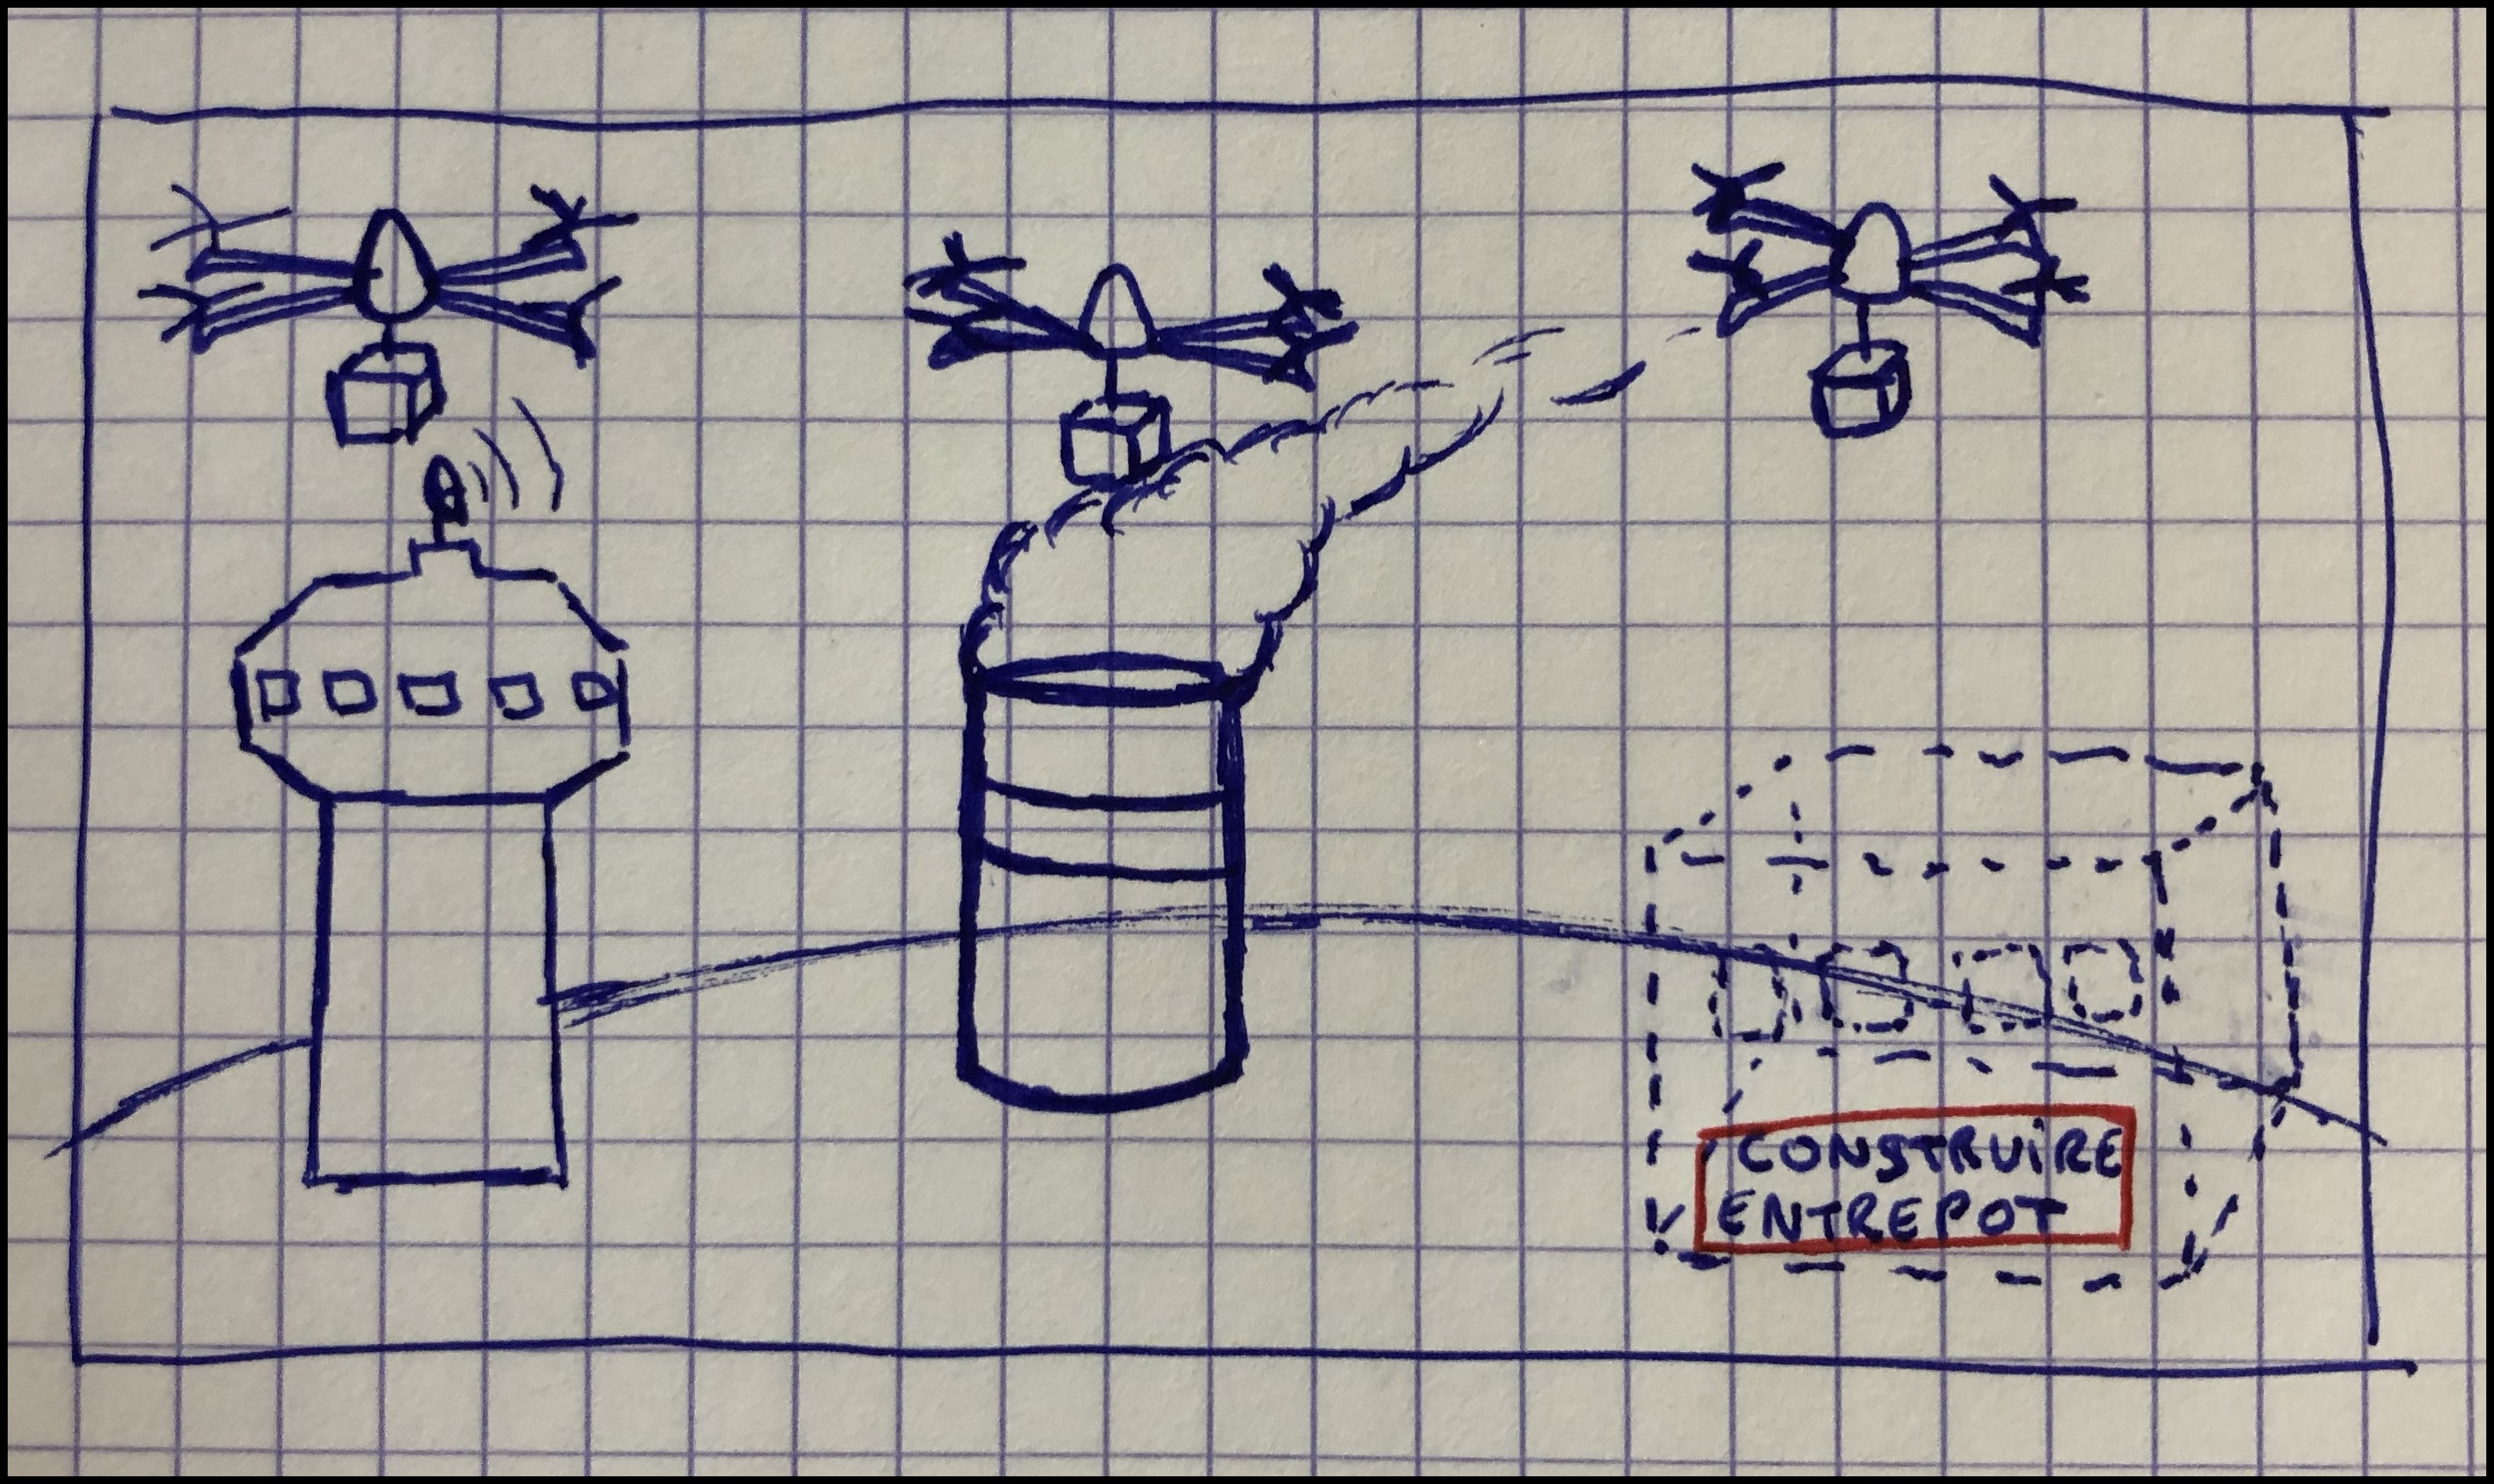 CONSTRUIRE
ENTREPOT